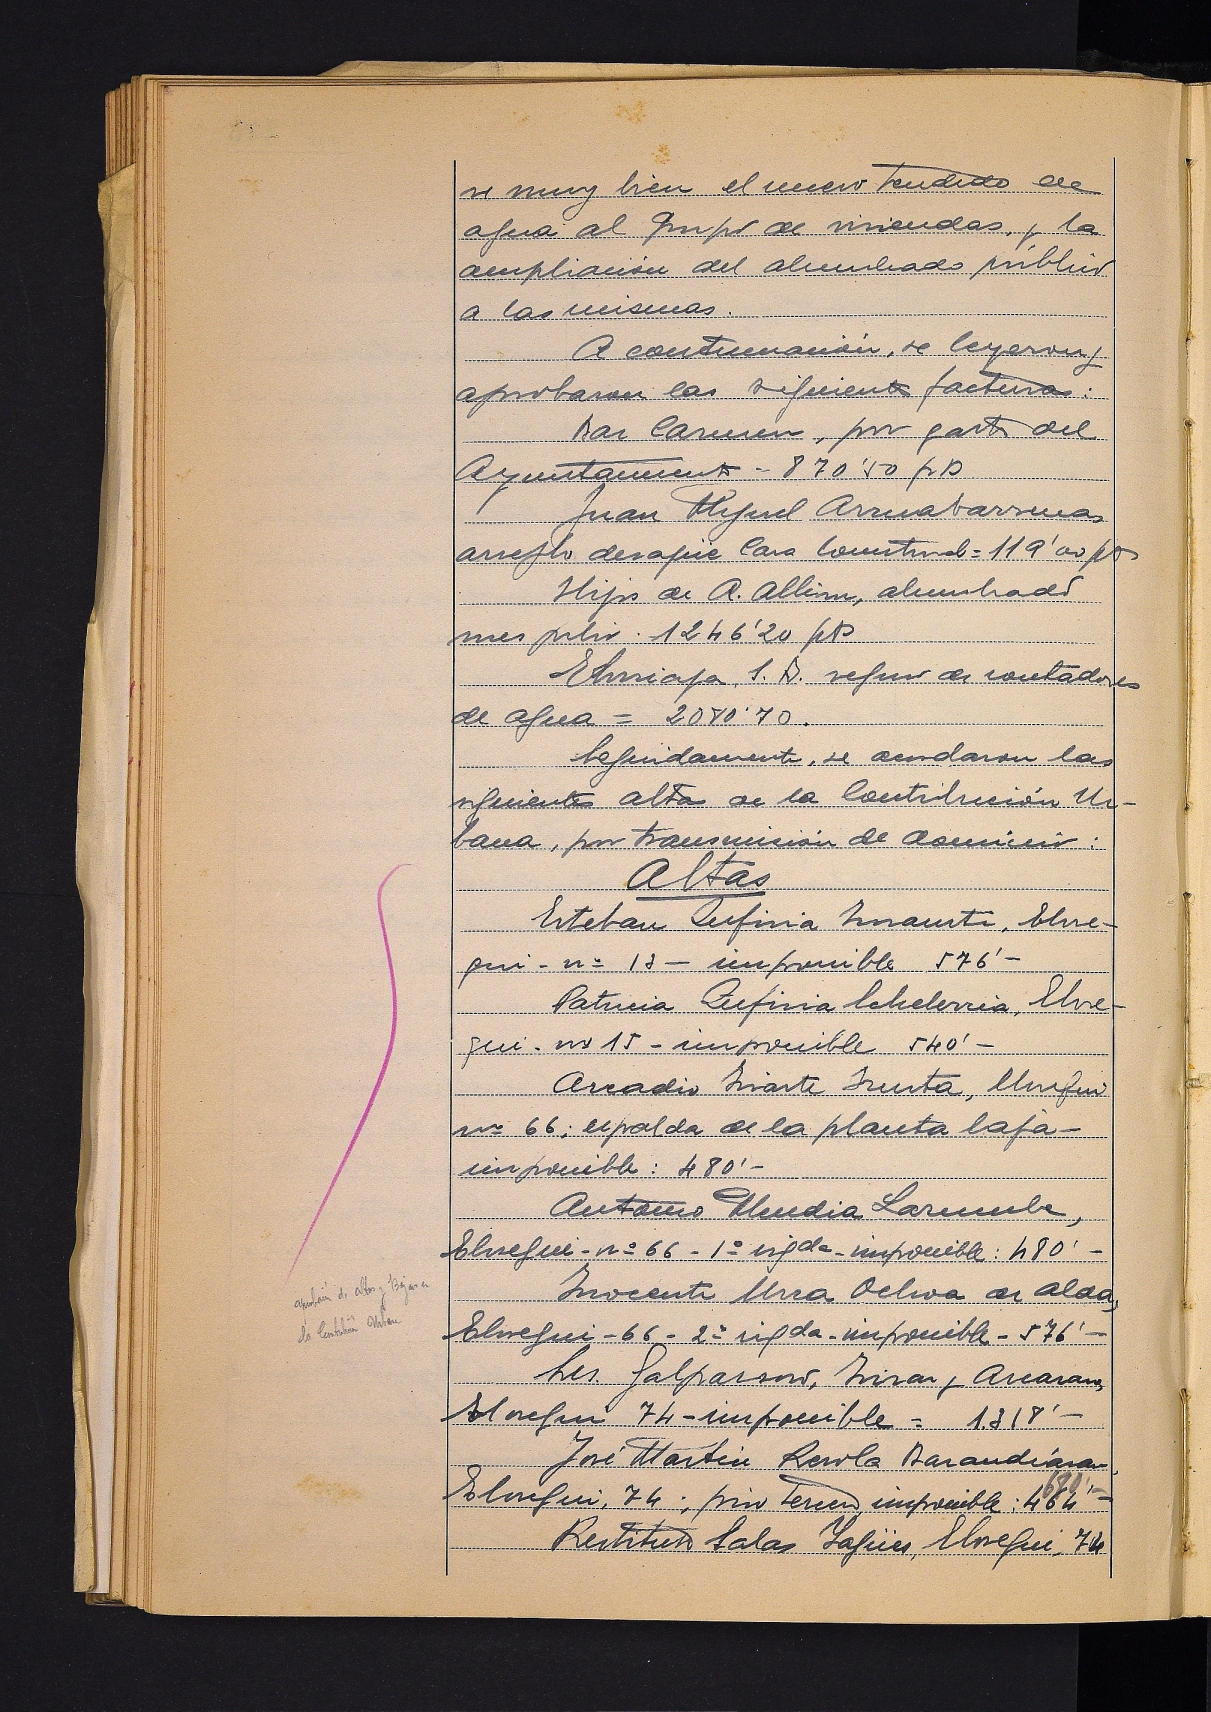 se muy bien el nuevo tendido de
agua al Grupo de viviendas, y la
ampliación del alumbrado público
a las mismas.
A continuación, se leyeron y
aprobaron las siguientes facturas:
Bar Carmen, por gastos del
Ayuntamiento - 870'50 pts
Juan Miguel Arruabarrena,
arreglo desagüe Casa Consistorial = 119'00 pts
Hijos de A. Albizu, alumbrado
mes julio. 1246'20 pts
Elorriaga, S.A. seguro de contadores
de agua = 2080'70.
Seguidamente, se acordaron las
siguientes altas de la Contribución Ur-
bana, por transmisión de dominio:
Altas
Esteban Zufiria Imaurti, Elose-
gui - nº 13 - imponible 576'-
Patricia Zufiria Echeberria, Elose-
gui - nº 15 - imponible 540'-
Arcadio Iriarte Irusta, Elosegui
nº 66; espalda de la planta baja -
imponible: 480'-
Antonio Mendia Larrumbe,
Elosegui - nº 66 - 1º izqda - imponible: 480'-
Inocente Urra Ochoa de Alda,
Elosegui - 66 - 2º izqda - imponible - 576'-
Sres. Galparsoro, Irizar y Ascarans,
Elosegui 74 - imponible = 1.318'-
José Martin Rezola Barandiáran,
Elosegui, 74; piso tercero imponible: 464'-
Restituto Salas Yagües, Elosegui, 74
aprobación de altas y Bajas en
la Contribución Urbana